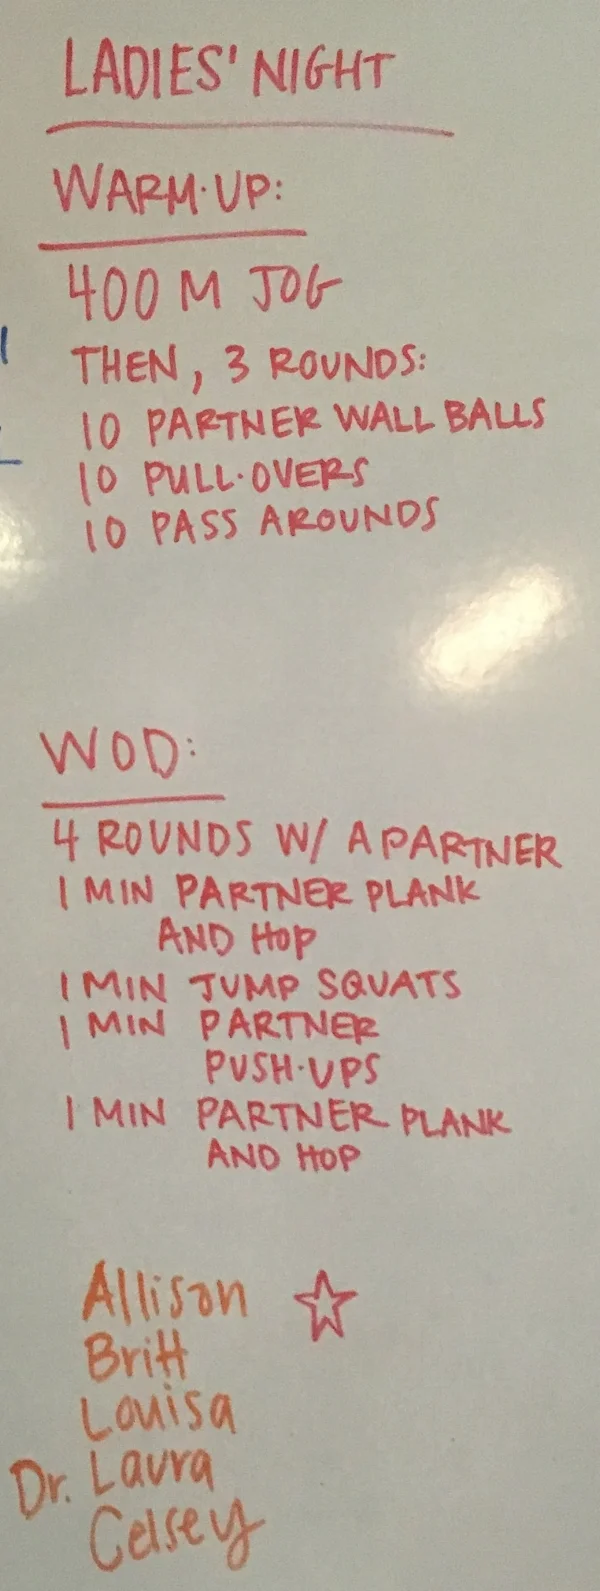 LADIES' NIGHT
WARM-UP:
400 M JOG
THEN, 3 ROUNDS:
10 PARTNER WALL BALLS
10 PULL-OVERS
10 PASS AROUNDS
WOD:
4 ROUNDS W/ A PARTNER
1 MIN PARTNER PLANK
AND HOP
1 MIN JUMP SQUATS
1 MIN PARTNER
PUSH-UPS
1 MIN PARTNER PLANK
AND HOP
Allison
Britt
Louisa
Dr. Laura
Celsey